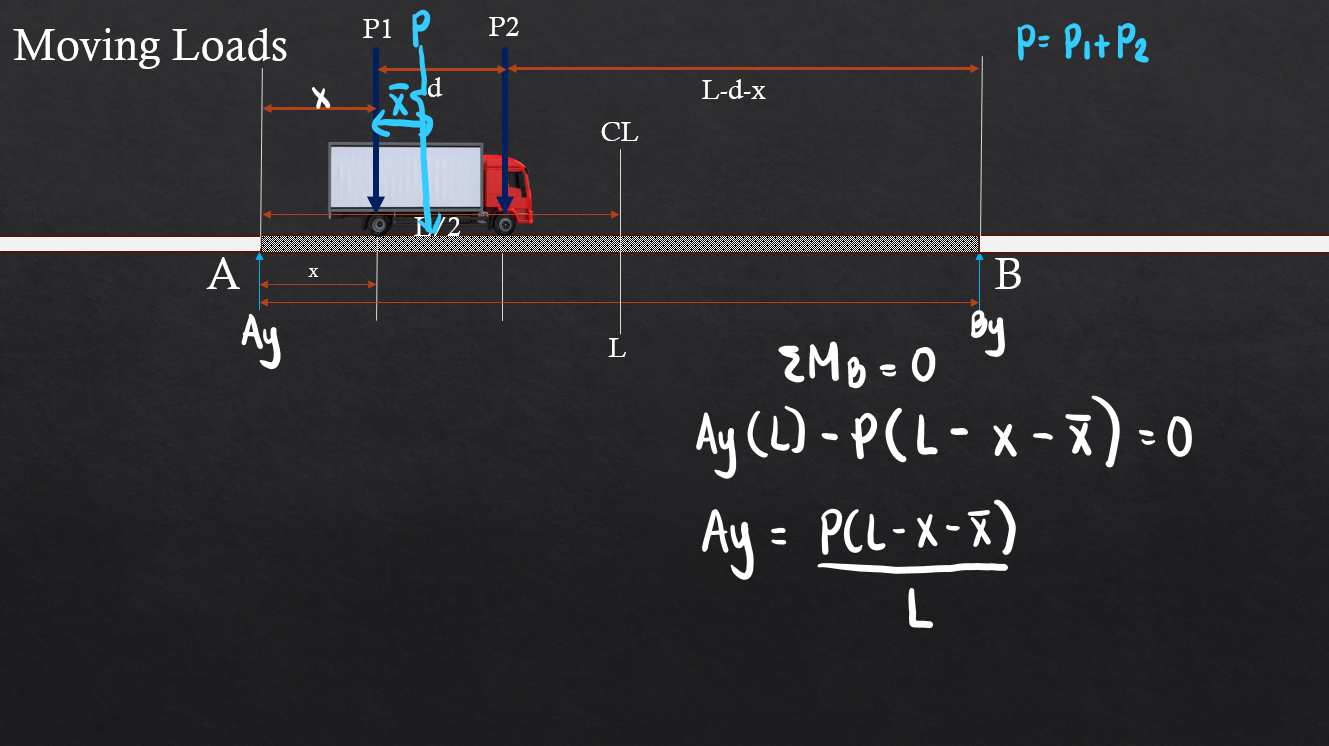 Moving Loads
P1 P P2
P = P1 + P2
x x̄ d L-d-x
CL
L/2
A x B
Ay By
L
ΣMB = 0
Ay(L) - P(L - x - x̄) = 0
Ay = P(L-x-x̄)
L